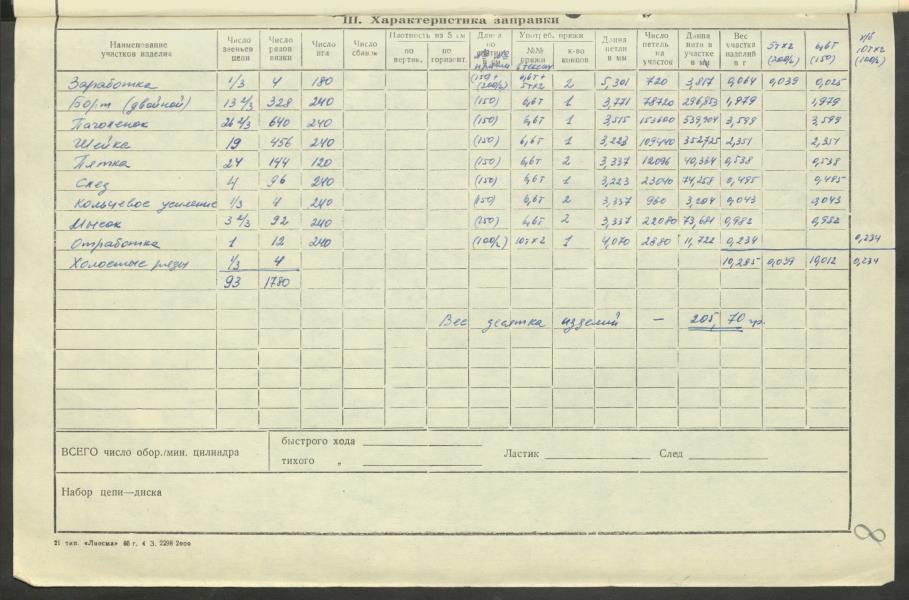 III. Характеристика заправки
Наименование участков изделия | Число звеньев цепи | Число рядов вязки | Число игл | Число сбавок | Плотность из 5 см по вертик. | по горизонт. | Длина | Употреб. пряжи №№ пряжи | к-во концов | Длина петли в мм | Число петель на участок | Длина нити в участке в мм | Вес участка изделия в г | 5тх2 (200/2) | 6,6т (150) | х/б 10тх2 (100/2)
Заработка 1/3 4 180 (150+ (200/2) 6,6т+ 5тх2 2 5,301 720 3,817 0,064 0,039 0,025
Борт (двойной) 13 2/3 328 240 (150) 6,6т 1 3,771 78720 296,853 1,979 1,979
Паголенок 26 2/3 640 240 (150) 6,6т 1 3,515 153600 539,904 3,599 3,599
Шейка 19 456 240 (150) 6,6т 1 3,223 109440 352,725 2,351 2,351
Пятка 24 144 120 (150) 6,6т 2 3,337 12096 40,364 0,538 0,538
След 4 96 240 (150) 6,6т 1 3,223 23040 74,258 0,495 0,495
Кольцевое усиление 1/3 4 240 (150) 6,6т 2 3,337 960 3,204 0,043 0,043
Мысок 3 2/3 92 240 (150) 6,6т 2 3,337 22080 73,681 0,982 0,982
Отработка 1 12 240 (100/2) 10тх2 1 4,070 2880 11,722 0,234 0,234
Холостые ряды 1/3 4 10,285 0,039 10,012 0,234
93 1780
Вес десятка изделий — 205,70 гр.
ВСЕГО число обор./мин. цилиндра
быстрого хода
тихого „
Ластик
След
Набор цепи—диска
8
21 тип. «Лиесма» 66 г. 4 З. 2298 2000